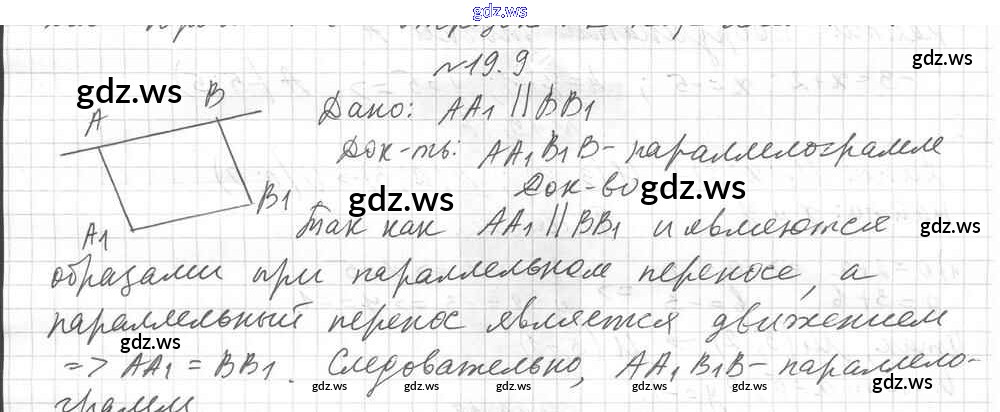 gdz.ws
№19.9
gdz.ws
gdz.ws
A B Дано: AA1 || BB1
Док-ть: AA1B1B - параллелограмм
gdz.ws gdz.ws
Док-во
B1
A1 Так как AA1 || BB1 и являются
gdz.ws
образами при параллельном переносе, а
параллельный перенос является движением
gdz.ws
=> AA1 = BB1. Следовательно, AA1B1B - параллело-
gdz.ws gdz.ws gdz.ws gdz.ws gdz.ws gdz.ws
грамм